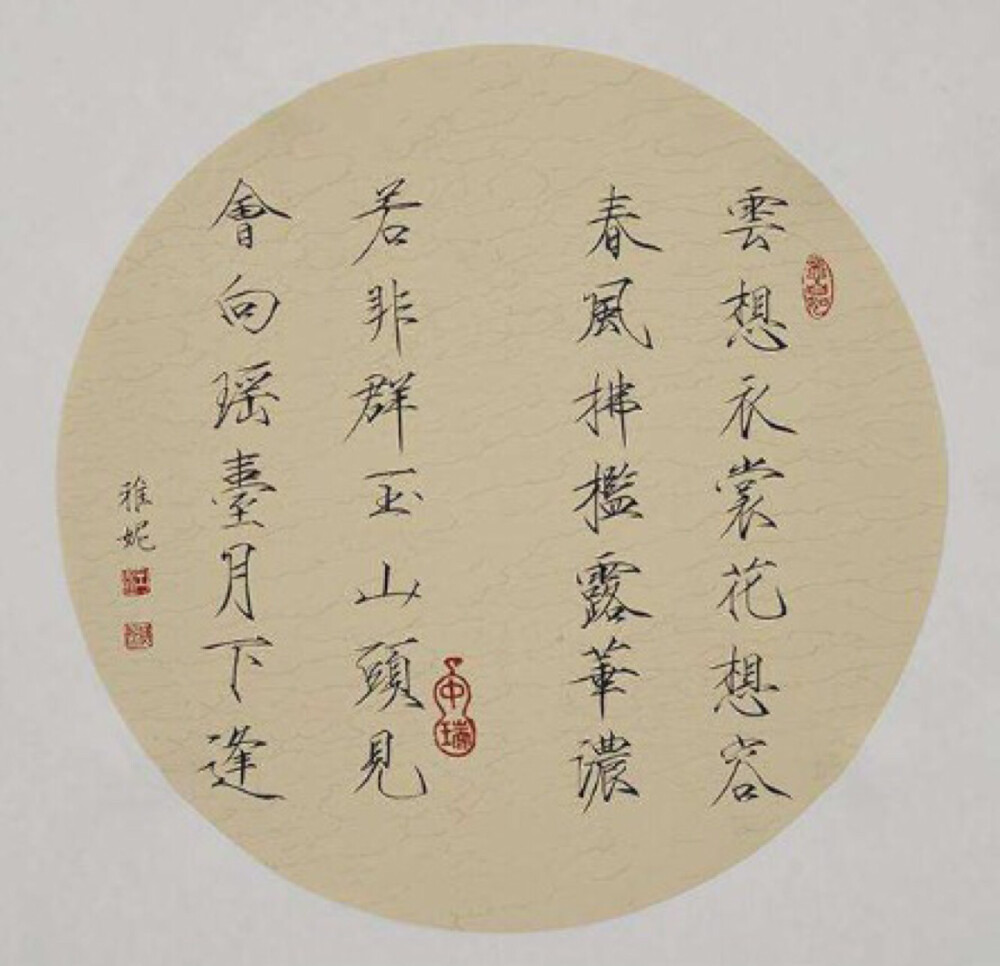 雲想衣裳花想容
春風拂檻露華濃
若非群玉山頭見
會向瑤臺月下逢
雅妮